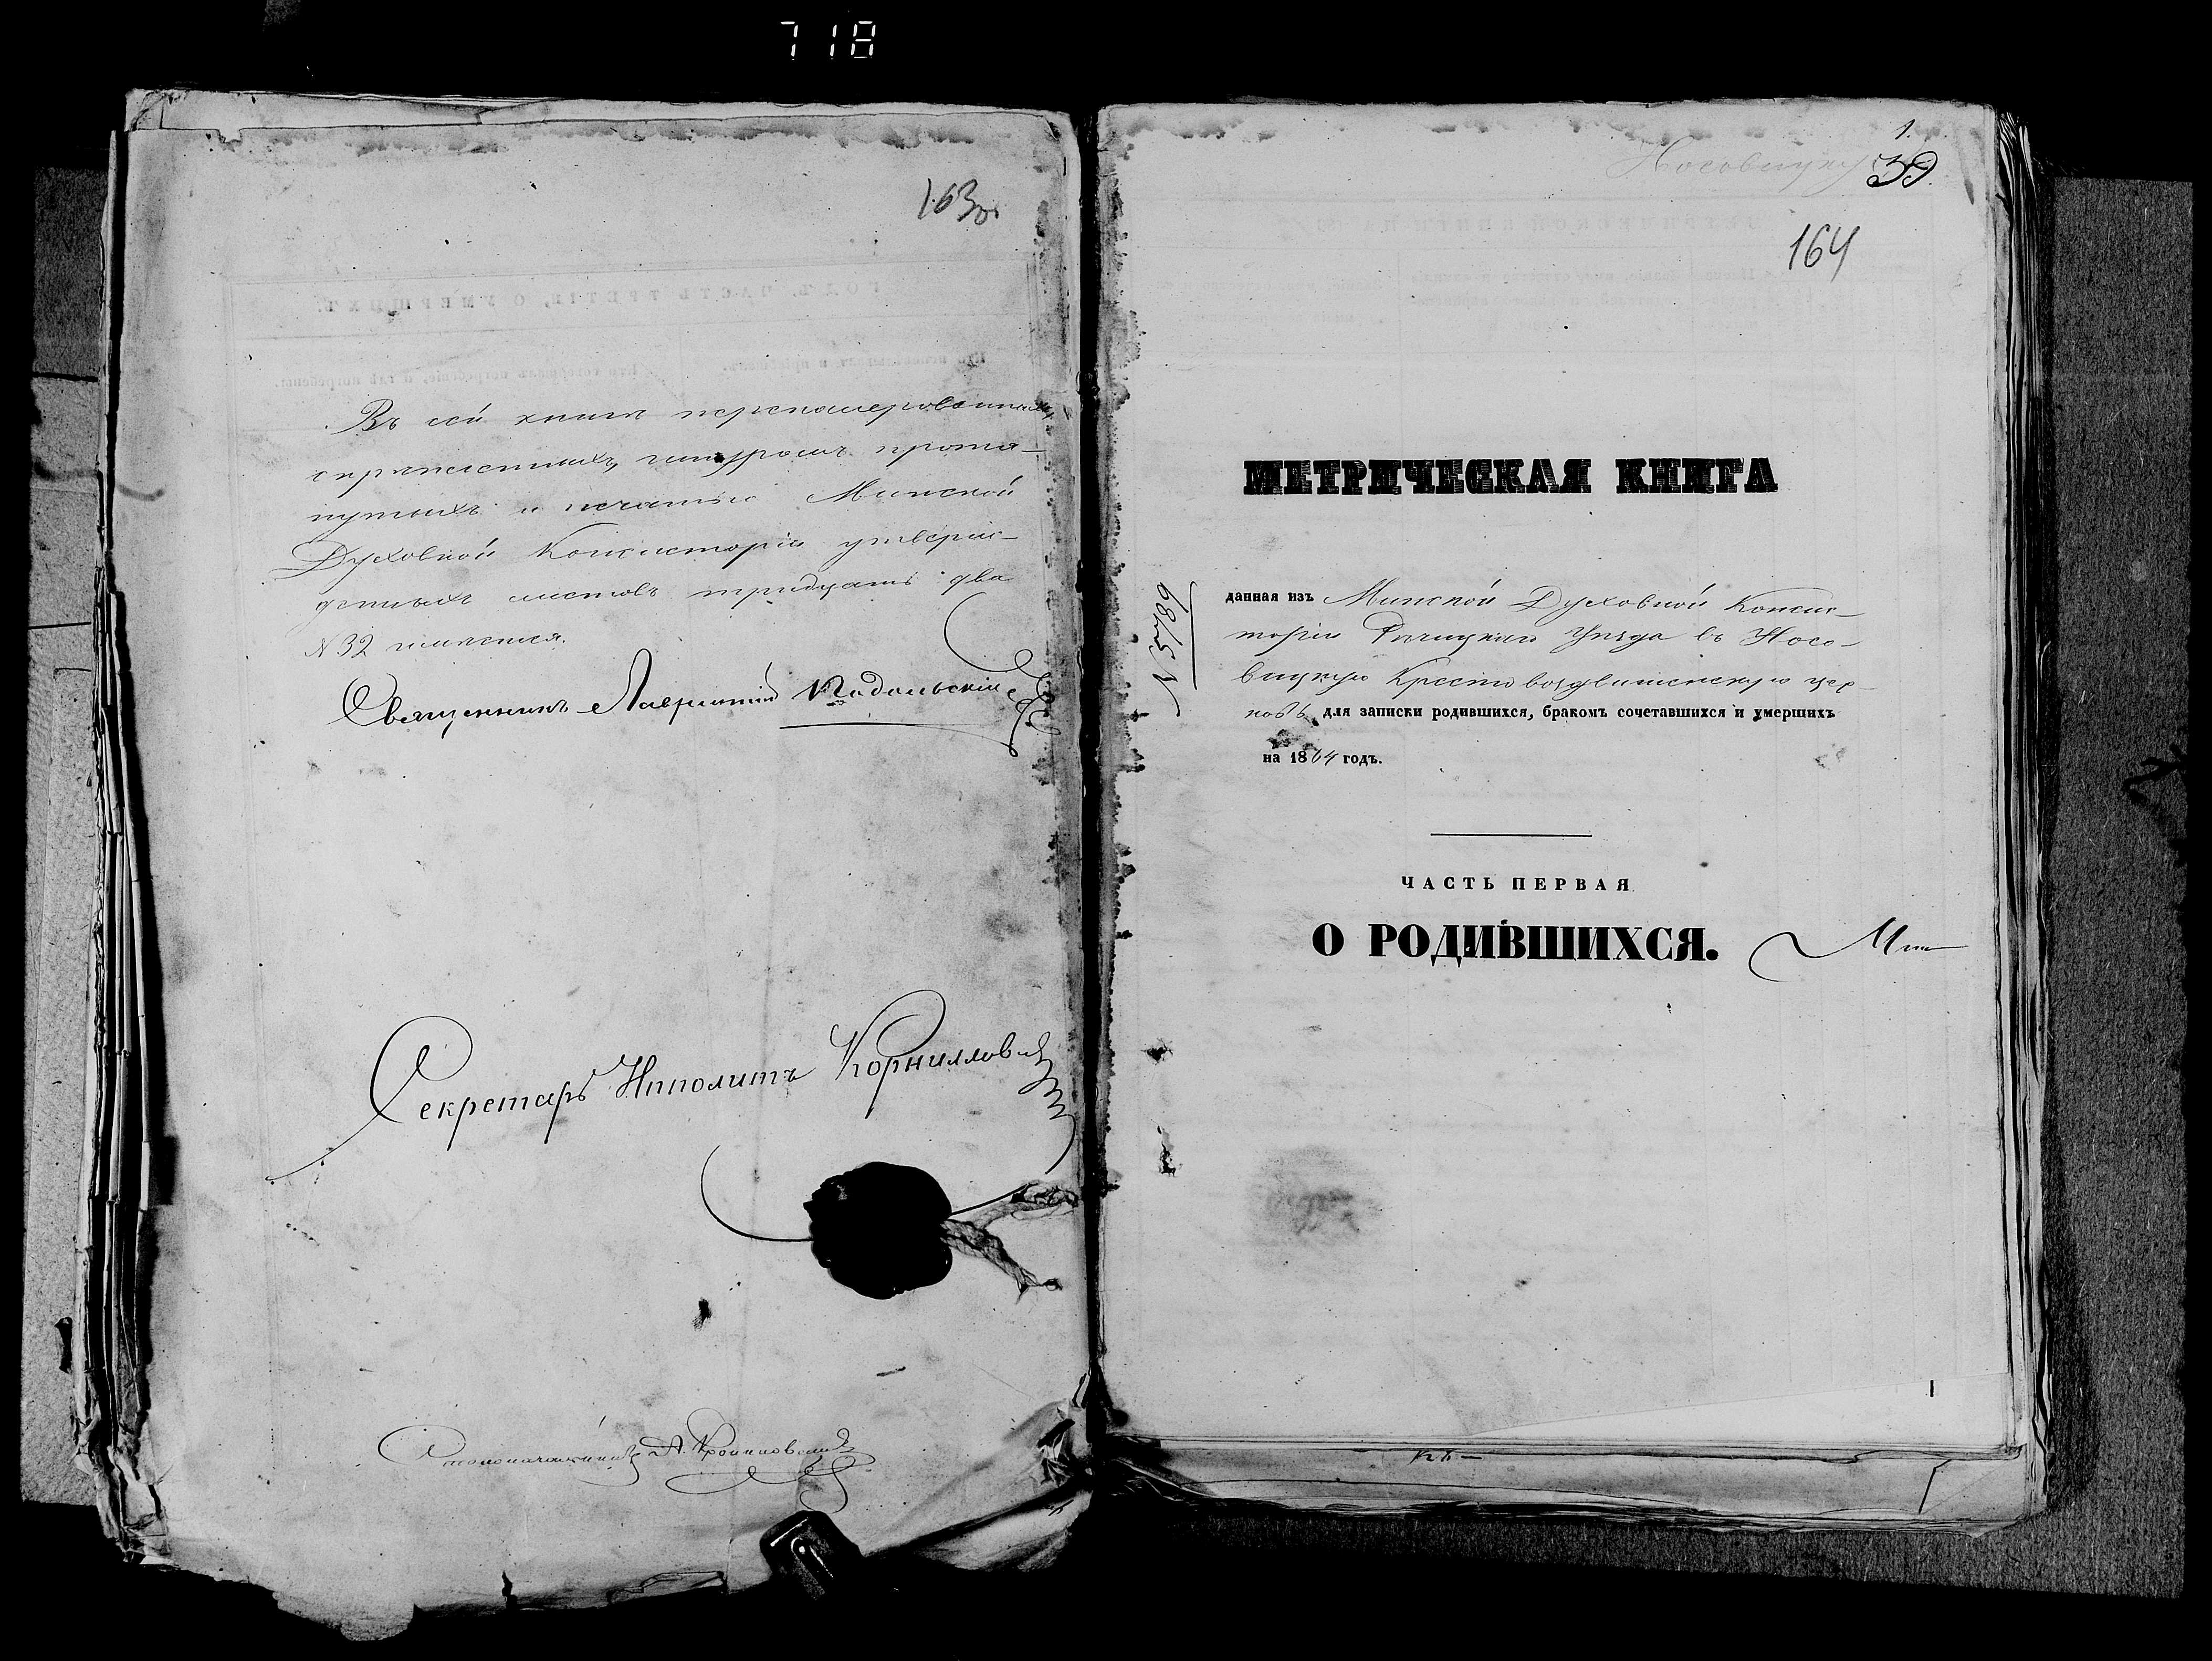 718
163 об
Въ сей книгѣ перенумерованныхъ,
скрѣпленныхъ, шнуромъ протя-
нутыхъ и печатью Минской
Духовной Консисторіи утверж-
денныхъ листовъ тридцать два
№ 32 имѣется.
Священникъ Лаврентій Подольскій
Секретарь Ипполитъ Корнилловичъ
Столоначальникъ А.
1.
Носовицкую
39
164
МЕТРИЧЕСКАЯ КНИГА
N 5789
данная изъ Минской Духовной Консис-
торіи Рѣчицкаго Уѣзда въ Носо-
вицкую Крестовоздвиженскую цер-
ковь для записки родившихся, бракомъ сочетавшихся и умершихъ
на 1864 годъ.
ЧАСТЬ ПЕРВАЯ
О РОДИВШИХСЯ.